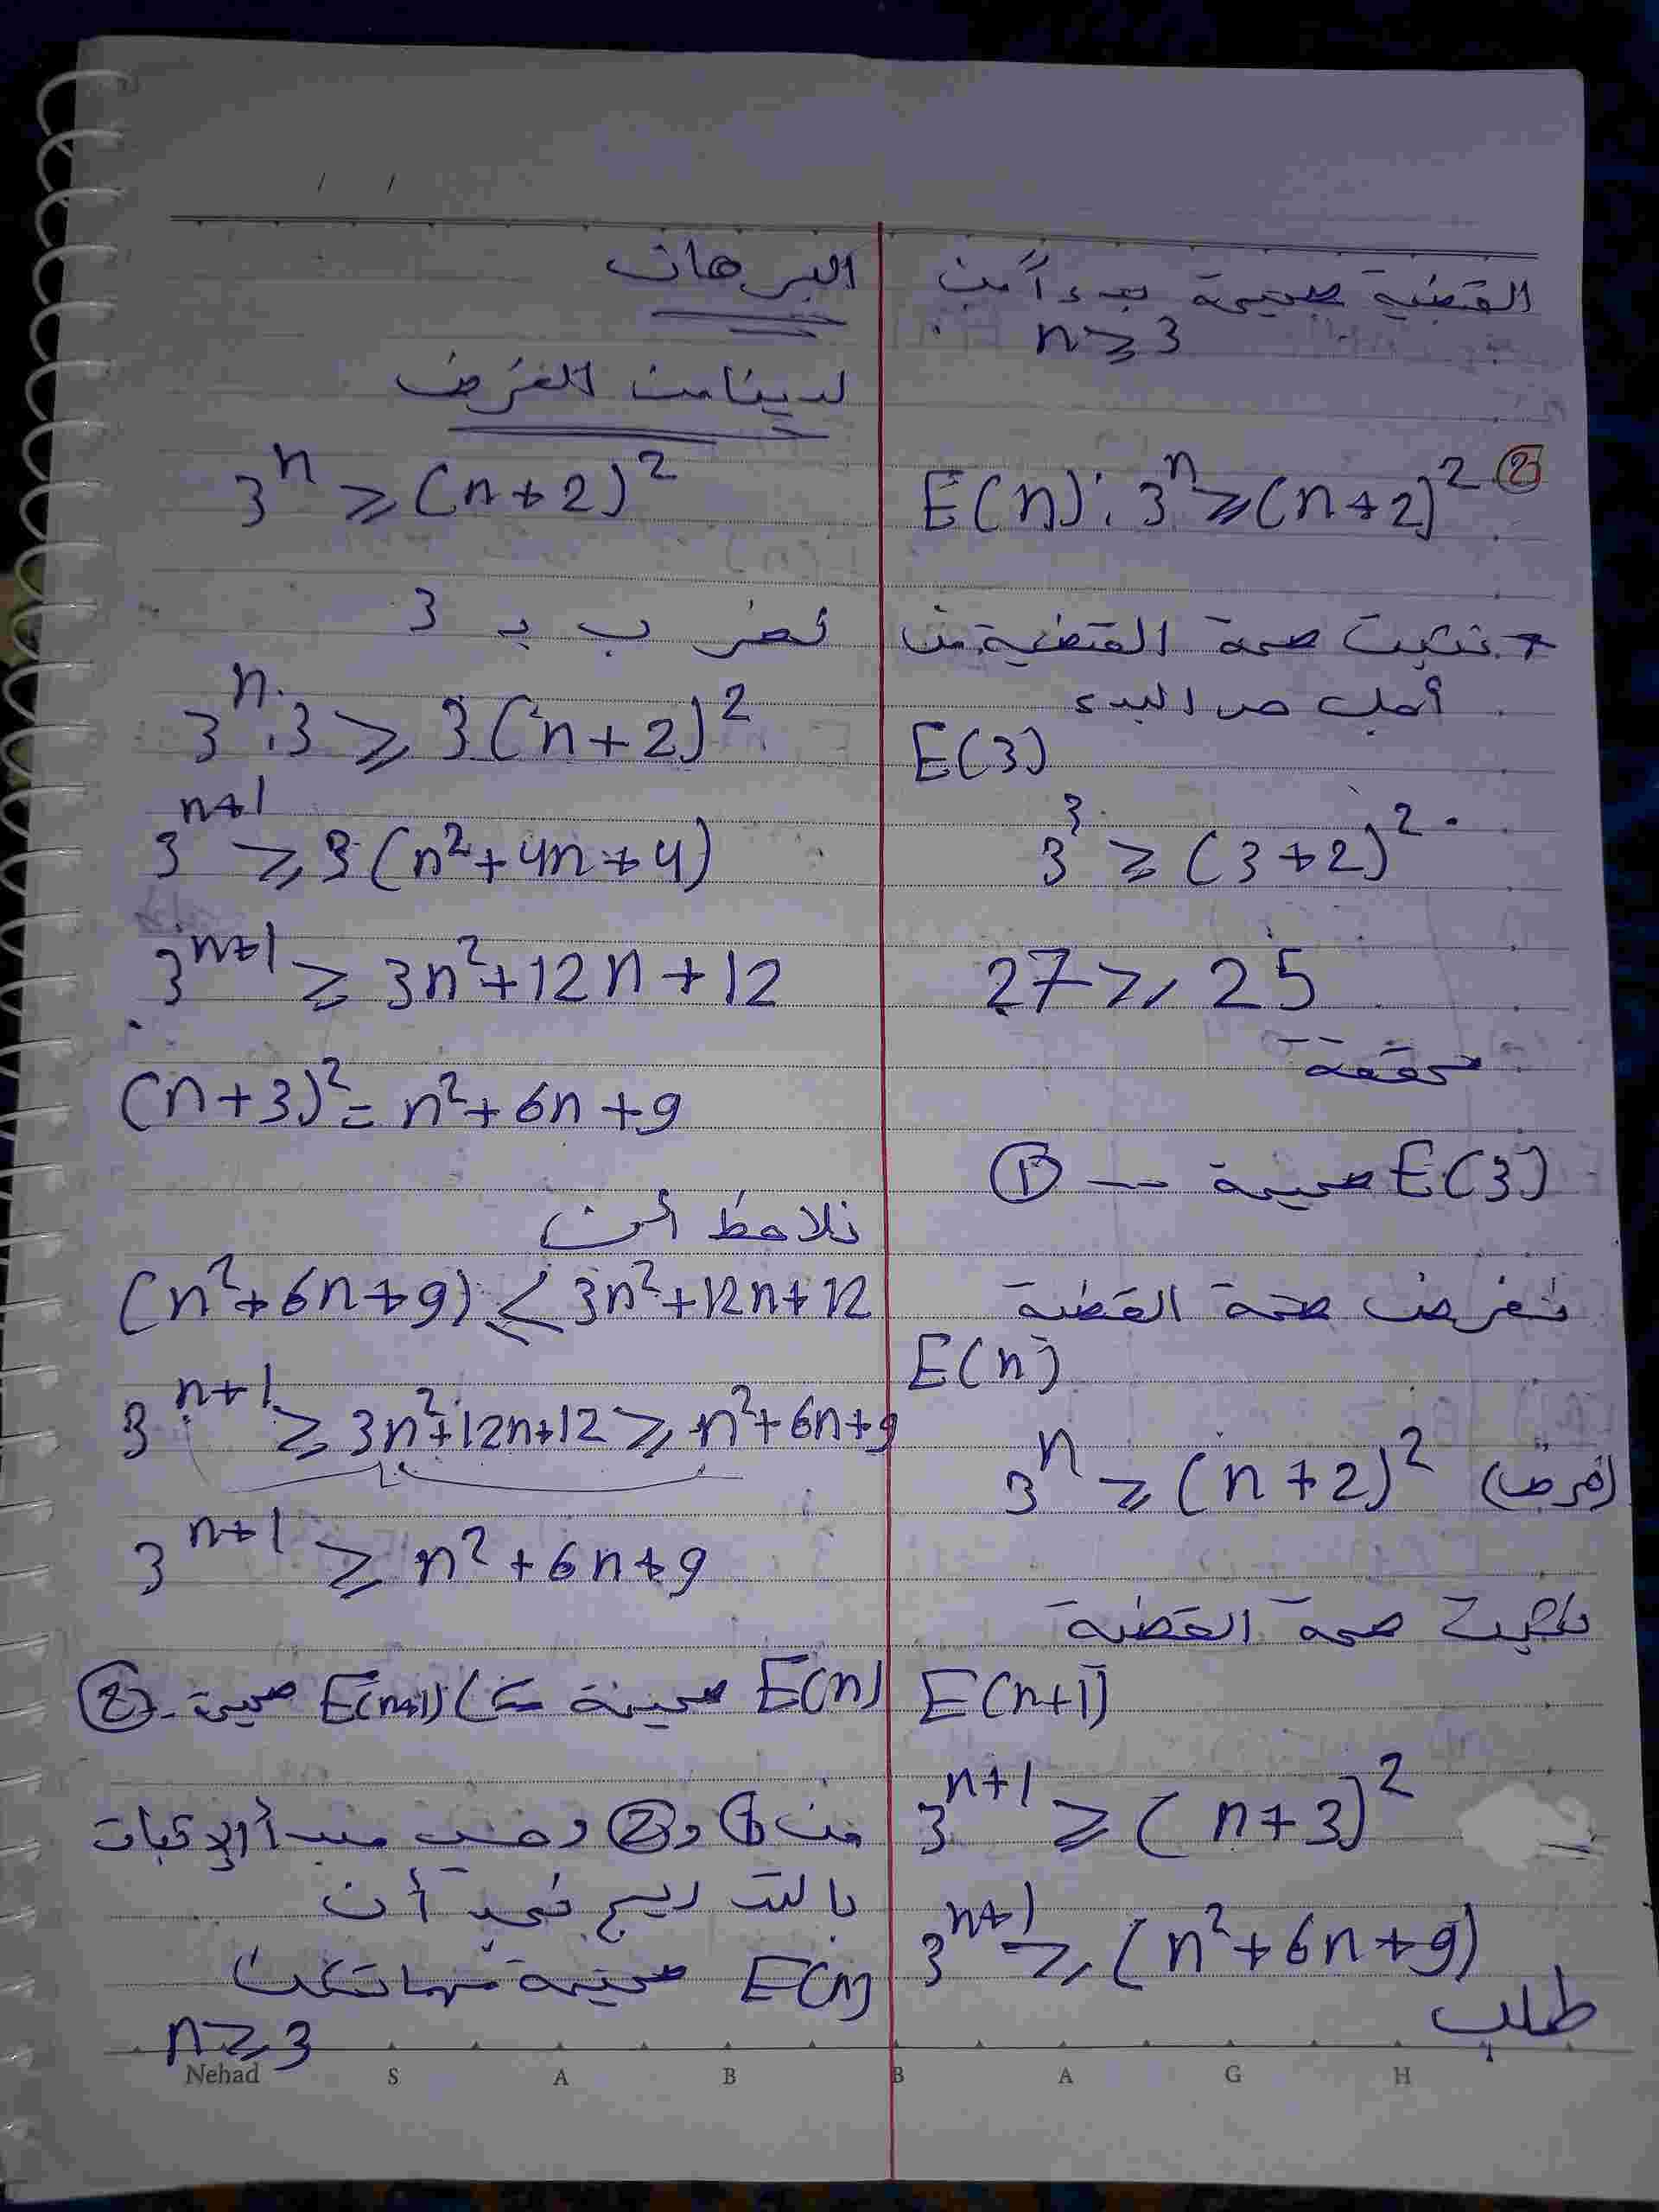 القضية صحيحة بدءاً من
n ≥ 3
② E(n): 3^n ≥ (n+2)^2
نثبت صحة القضية من
أجل حد البدء
E(3)
3^3 ≥ (3+2)^2
27 ≥ 25
محققة
E(3) صحيحة -- ①
نفرض صحة القضية
E(n)
3^n ≥ (n+2)^2 (فرض)
نثبت صحة القضية
E(n+1)
3^{n+1} ≥ (n+3)^2
3^{n+1} ≥ (n^2+6n+9)
طلب
البرهان
لدينا من الفرض
3^n ≥ (n+2)^2
نضرب بـ 3
3^n.3 ≥ 3(n+2)^2
3^{n+1} ≥ 3(n^2+4n+4)
3^{n+1} ≥ 3n^2+12n+12
(n+3)^2 = n^2+6n+9
نلاحظ أن
(n^2+6n+9) ≤ 3n^2+12n+12
3^{n+1} ≥ 3n^2+12n+12 ≥ n^2+6n+9
3^{n+1} ≥ n^2+6n+9
E(n) صحيحة ⇐ E(n+1) صحيحة - ②
من ① و ② وحسب مبدأ الإثبات
بالتدريج نجد أن
E(n) صحيحة مهما تكن
n ≥ 3
Nehad S A B B A G H